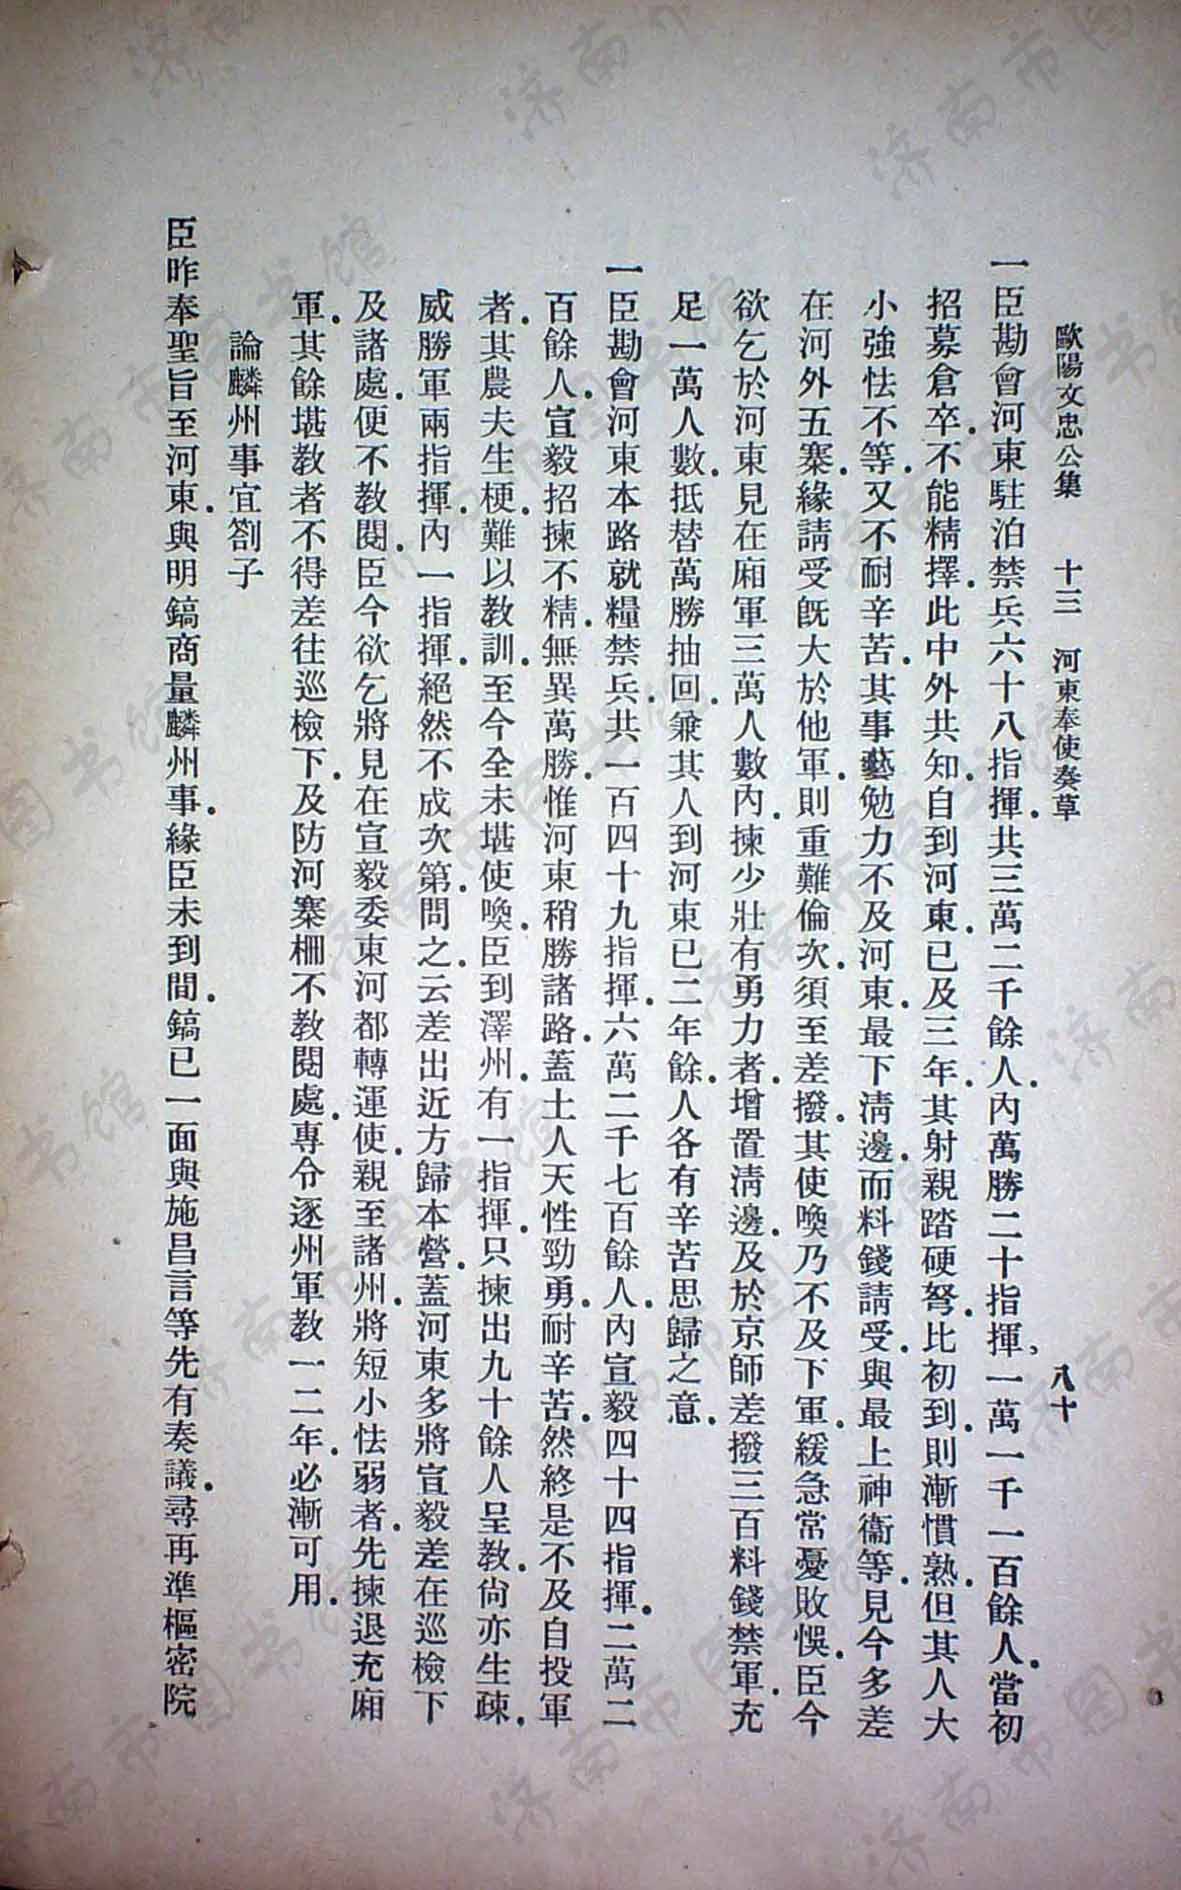 歐陽文忠公集 十三 河東奉使奏草 八十
一臣勘會河東駐泊禁兵六十八指揮．共三萬二千餘人．內萬勝二十指揮、一萬一千一百餘人．當初
招募倉卒．不能精擇．此中外共知．自到河東．已及三年．其射親踏硬弩．比初到．則漸慣熟．但其人大
小強怯不等．又不耐辛苦．其事藝勉力不及河東．最下淸邊．而料錢請受．與最上神衞等．見今多差
在河外五寨．緣請受旣大於他軍．則重難倫次．須至差撥．其使喚乃不及下軍．緩急常憂敗悞．臣今
欲乞於河東見在廂軍三萬人數內．揀少壯有勇力者．增置淸邊．及於京師差撥三百料錢禁軍．充
足一萬人數．抵替萬勝抽回．兼其人到河東已二年餘．人各有辛苦思歸之意．
一臣勘會河東本路就糧禁兵．共一百四十九指揮．六萬二千七百餘人．內宣毅四十四指揮．二萬二
百餘人．宣毅招揀不精．無異萬勝．惟河東稍勝諸路．蓋土人天性勁勇．耐辛苦．然終是不及自投軍
者．其農夫生梗．難以教訓．至今全未堪使喚．臣到澤州．有一指揮．只揀出九十餘人呈教．尙亦生疎．
威勝軍兩指揮．內一指揮．絕然不成次第．問之．云差出近方歸本營．蓋河東多將宣毅差在巡檢下
及諸處．便不教閱．臣今欲乞將見在宣毅委東河都轉運使．親至諸州．將短小怯弱者．先揀退充廂
軍．其餘堪教者不得差往巡檢下．及防河寨柵不教閱處．專令逐州軍教一二年．必漸可用．
論麟州事宜劄子
臣昨奉聖旨至河東．與明鎬商量麟州事．緣臣未到間．鎬已一面與施昌言等先有奏議．尋再準樞密院